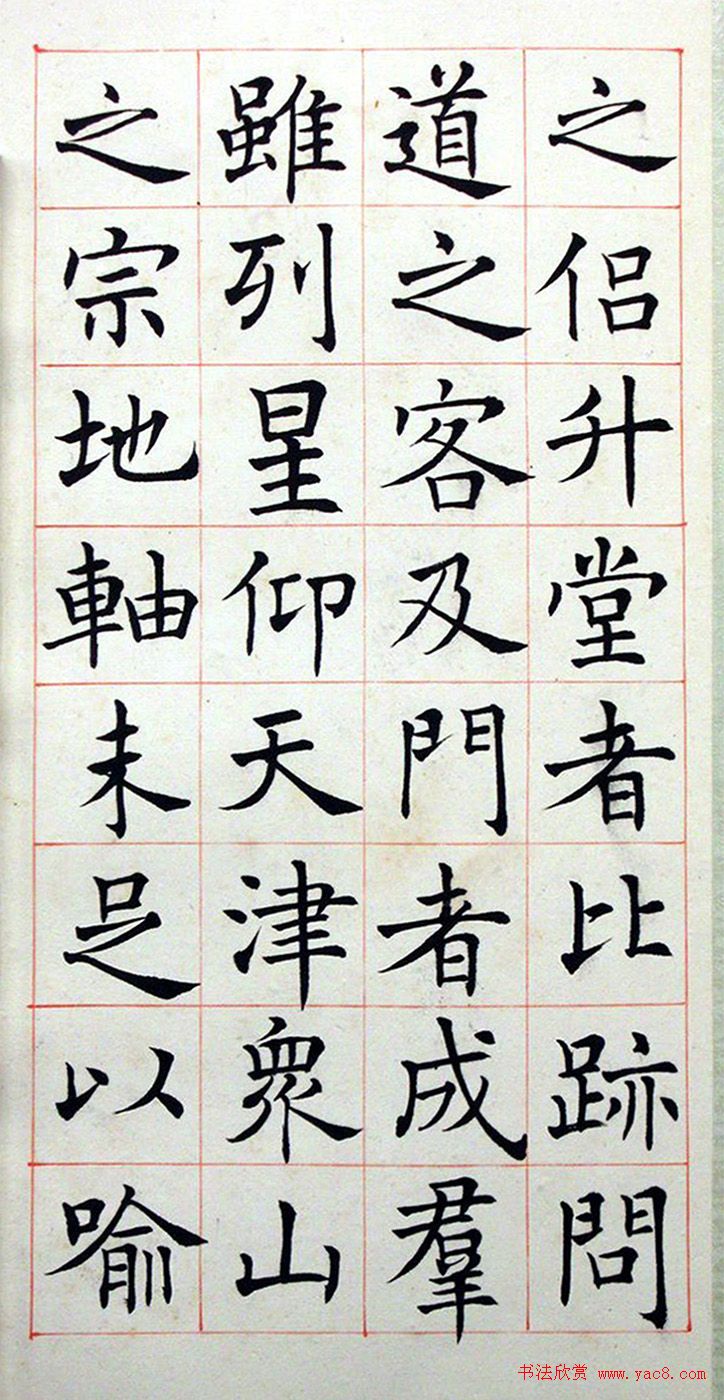 之侣升堂者比跡問
道之客及門者成羣
雖列星仰天津衆山
之宗地軸未足以喻
书法欣赏 www.yac8.com